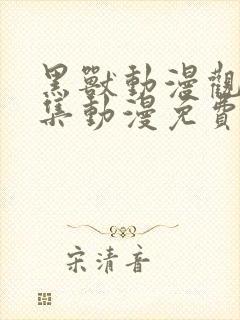 黑獸動漫觀
集動漫免費
宋清音